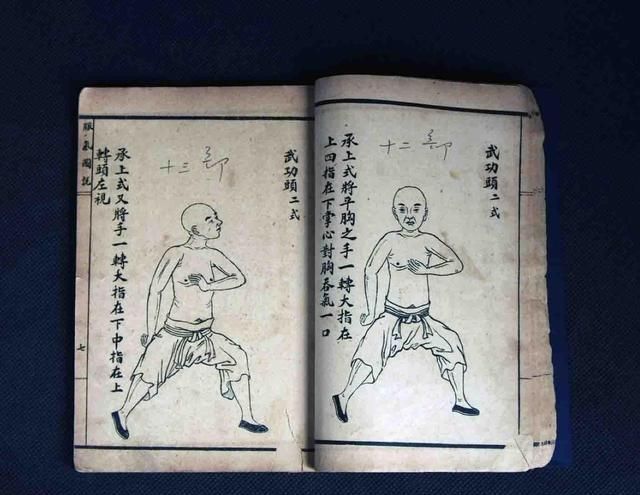 武功頭二式
十二
承上式將平胸之手一轉大指在
上四指在下掌心對胸吞氣一口
武功頭二式
十三
承上式又將手一轉大指在下中指在上
轉頭左視
服氣圖說
七